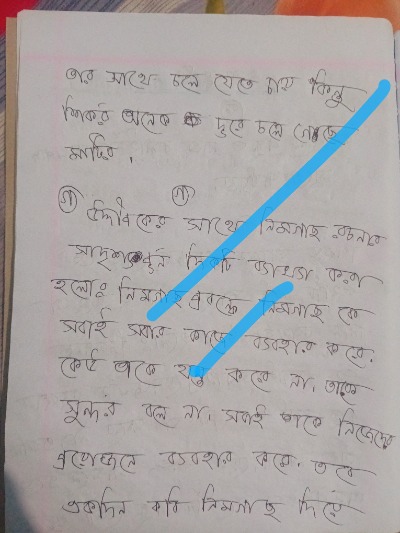 তার সাথে চলে যেতে চায় কিন্তু
শিকর অনেক দূরে চলে গেছে
মাটির।
(গ) (গ)
উদ্দীপকের সাথে নিমগাছ রচনার
সাদৃশ্যপূর্ন দিকটি ব্যাখ্যা করা
হলোঃ নিমগাছ প্রবন্ধে নিমগাছ কে
সবাই সবার কাজে ব্যবহার করে।
কেউ তাকে যত্ন করে না, তাকে
সুন্দর বলে না। সবাই তাকে নিজেদের
প্রয়োজনে ব্যবহার করে। তবে
একদিন কবি নিমগাছ দিয়ে